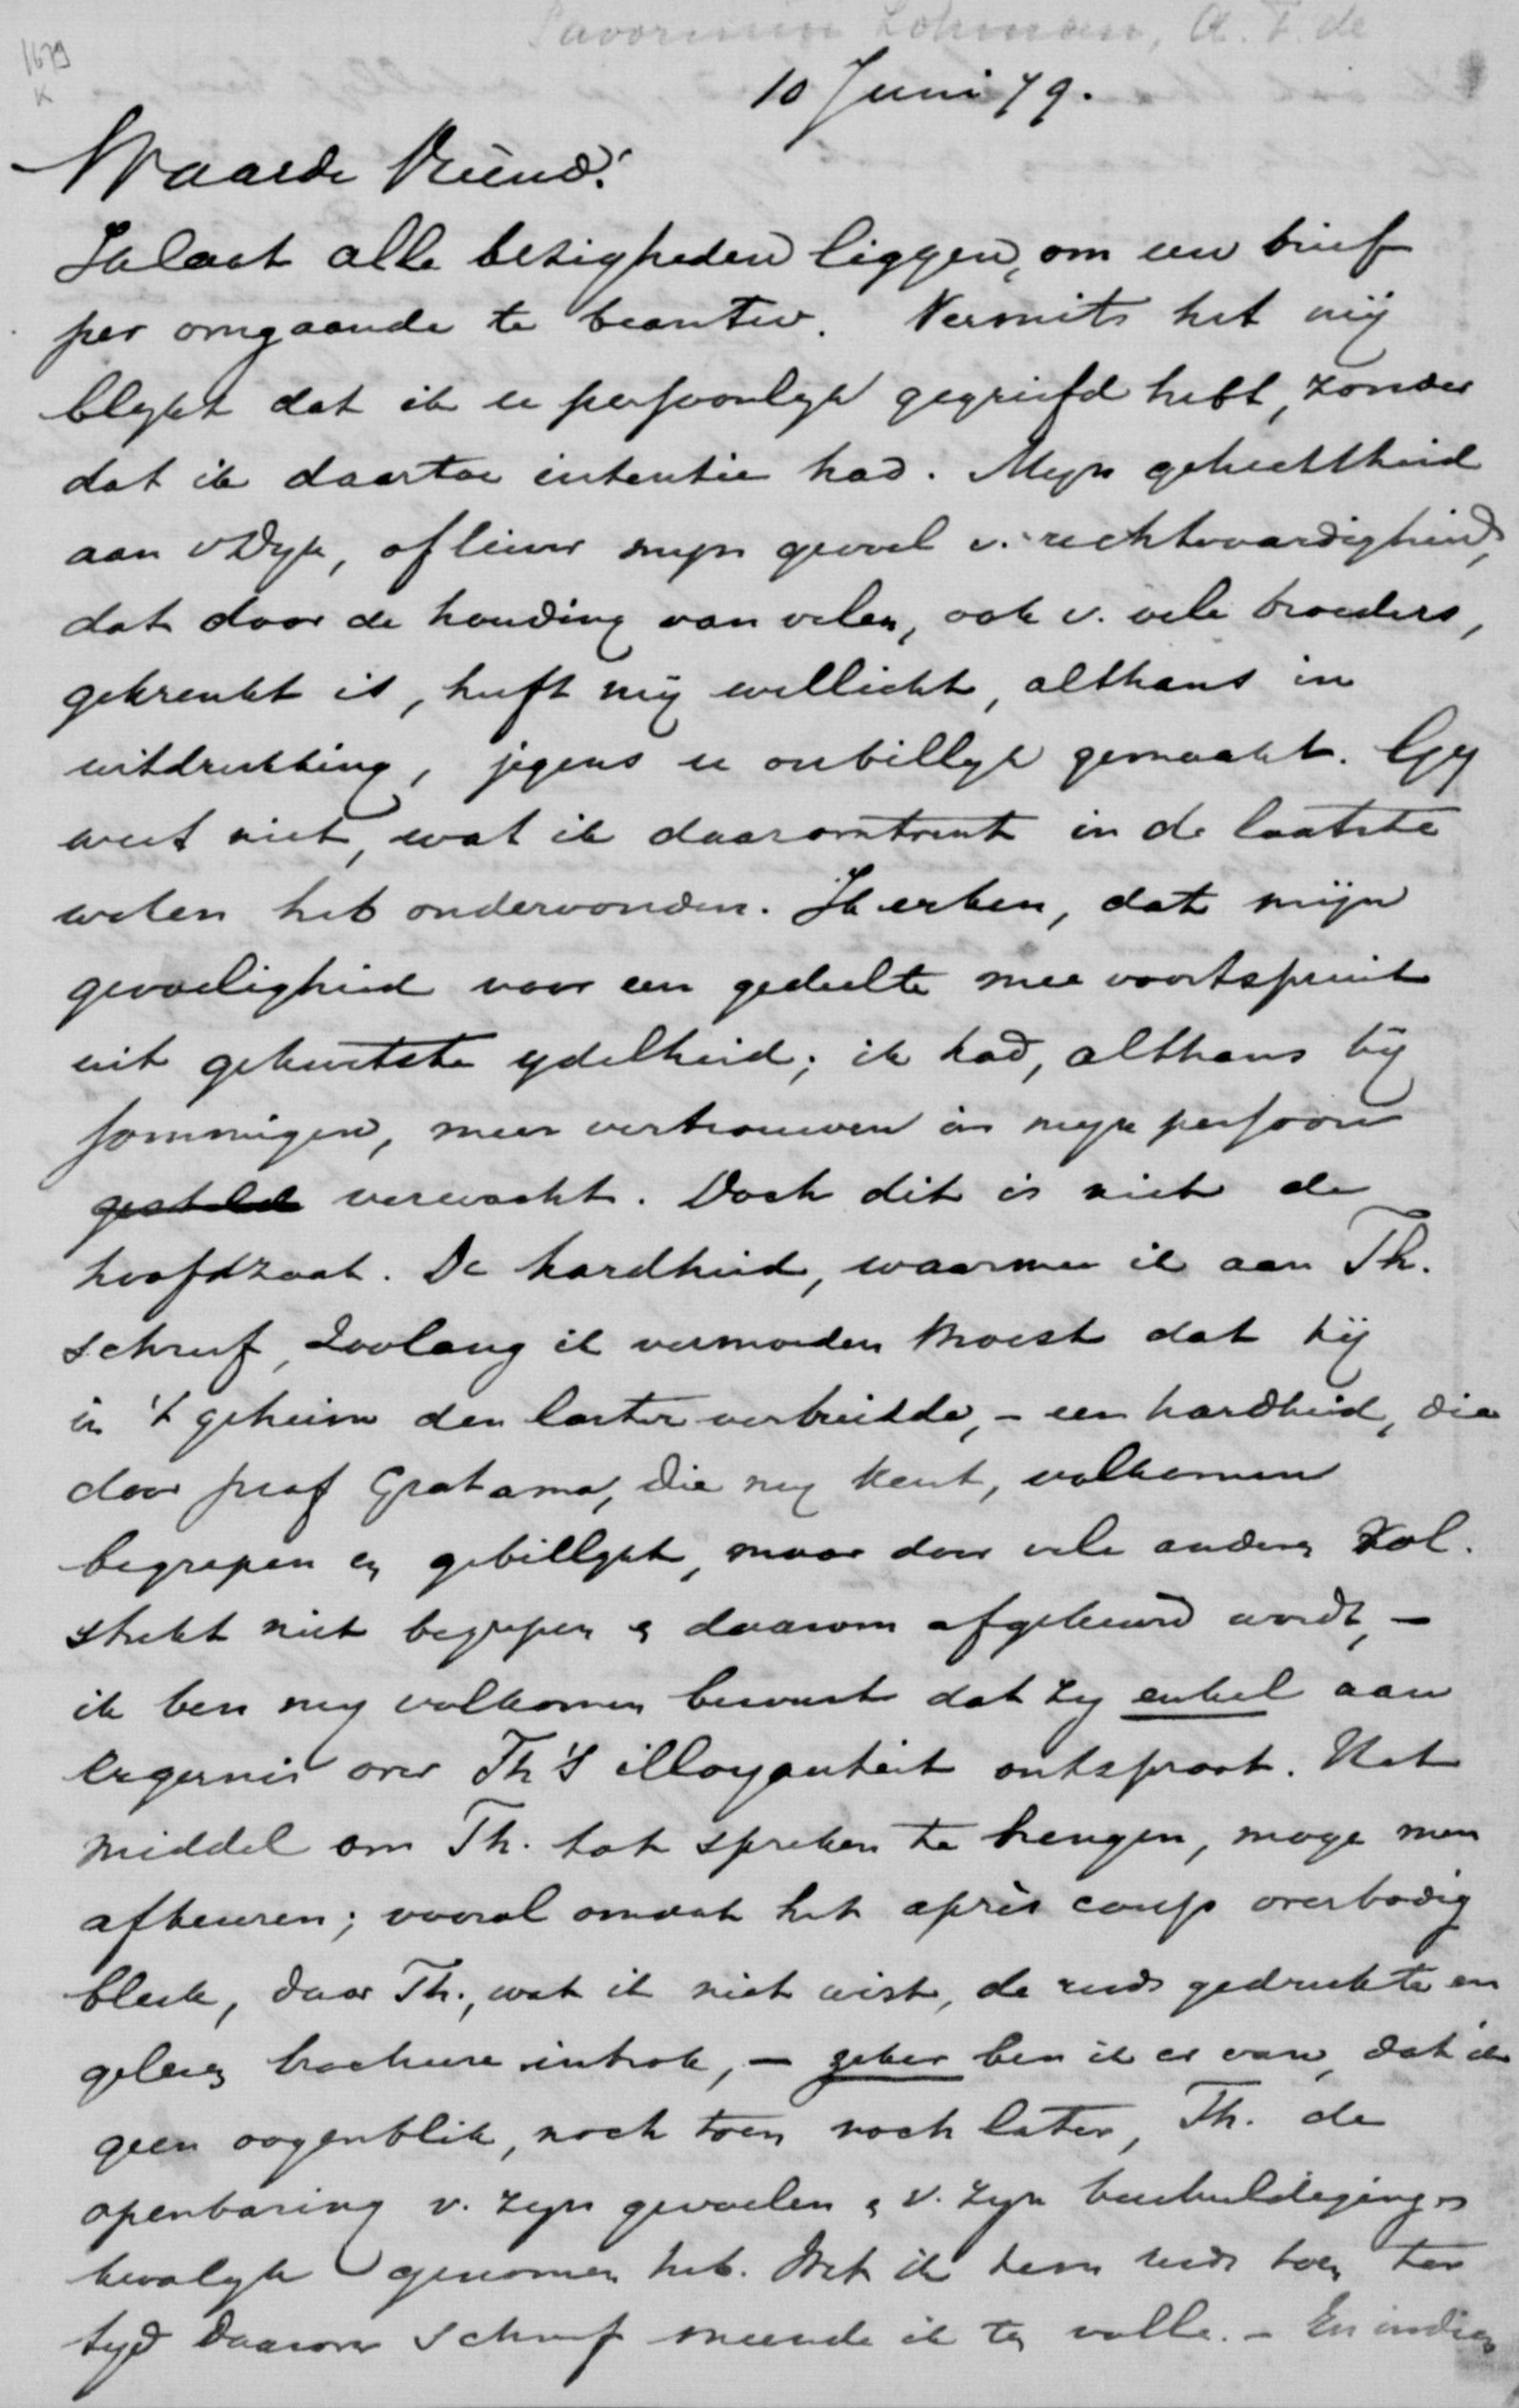 Savornin Lohman, A. F. de
1679
K
10 Juni 79.
Waarde Vriend!
Ik laat alle bezigheden liggen, om uw brief
per omgaande te beantw. Vermits het mij
blykt dat ik u persoonlyk gegriefd hebt, zonder
dat ik daartoe intentie had. Myn gehechtheid
aan vDyk, of liever myn gevoel v. rechtvaardigheid,
dat door de houding van velen, ook v. vele broeders,
gekrenkt is, heeft mij wellicht, althans in
uitdrukking, jegens u onbillyk gemaakt. Gy
weet niet, wat ik daaromtrent in de laatste
weken heb ondervonden. Ik erken, dat mijn
gevoeligheid voor een gedeelte mee voortspruit
uit gekwetste ydelheid; ik had, althans bij
sommigen, meer vertrouwen in myn persoon
gesteld verwacht. Doch dit is niet de
hoofdzaak. De hardheid, waarmee ik aan Th.
schreef, zoolang ik vermoeden moest dat hij
in 't geheim den laster verbreidde, - een hardheid, die
door prof Gratama, die my kent, volkomen
begrepen en gebillykt, maar door vele anderen vol.
strekt niet begrepen & daarom afgekeurd wordt, -
ik ben my volkomen bewust dat zy enkel aan
ergernis over Th's illoyauteit ontsproot. Het
middel om Th. tot spreken te brengen, moge men
afkeuren; vooral omdat het après coup overbodig
bleek, daar Th., wat ik niet wist, de reeds gedrukte en
gelezen brochure introk, - zeker ben ik er van, dat ik
geen oogenblik, noch toen noch later, Th. de
openbaring v. zyn gevoelen & v. zyn beschuldigingen
kwalyk genomen heb. Wat ik hem reeds toen ter
tyd daarover schreef meende ik ten volle. - En indien